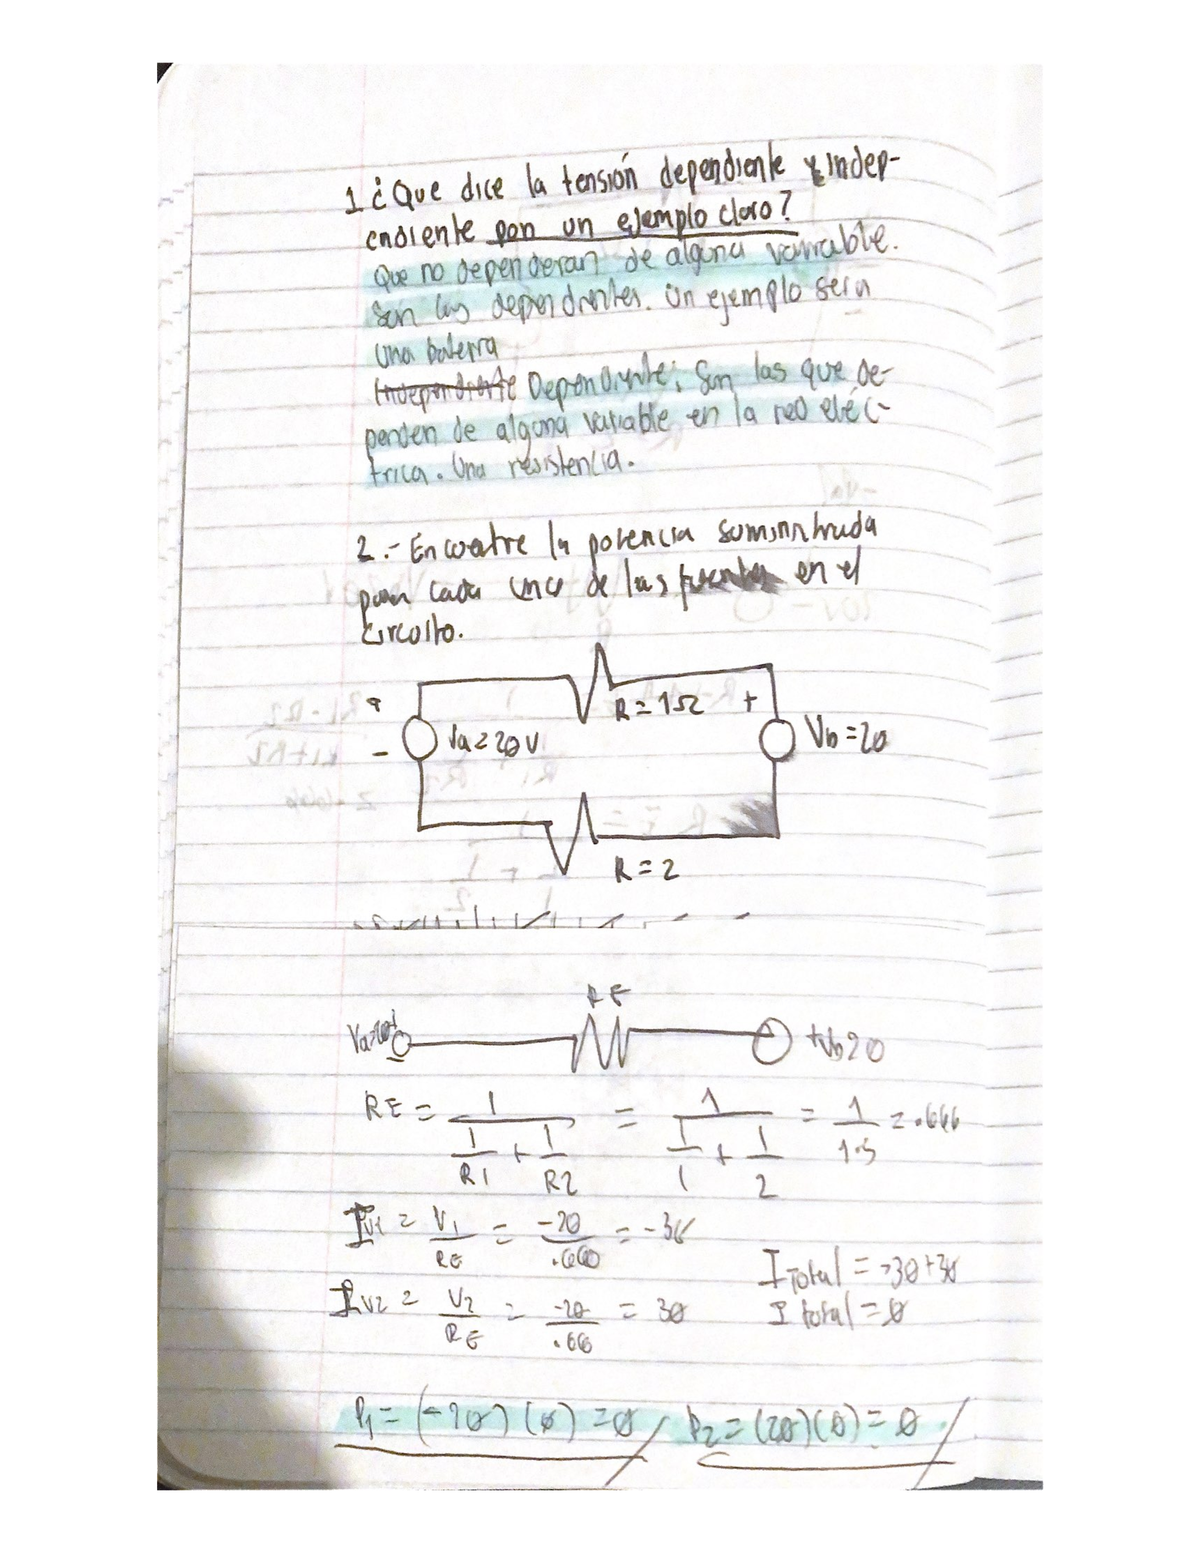 1 ¿Que dice la tensión dependiente y indep-
endiente pon un ejemplo claro?
Que no dependeran de alguna variable.
Son las dependientes. Un ejemplo seria
una bateria
Independiente Dependiente; Son las que de-
penden de alguna variable en la red eléc-
trica. Una resistencia.
2.- Encuentre la potencia suministrada
para cada una de las fuentes en el
circuito.
+
R=1Ω +
- Va=20V Vb=20
R=2
RE
Va=20V +Vb20
RE = 1 / (1/R1 + 1/R2) = 1 / (1/1 + 1/2) = 1/1.5 = .666
Iv1 = V1/RE = -20/.660 = -30
I Total = -30+30
Iv2 = V2/RE = -20/.66 = 30
I total = 0
P1 = (-20)(0) = 0 P2 = (20)(0) = 0